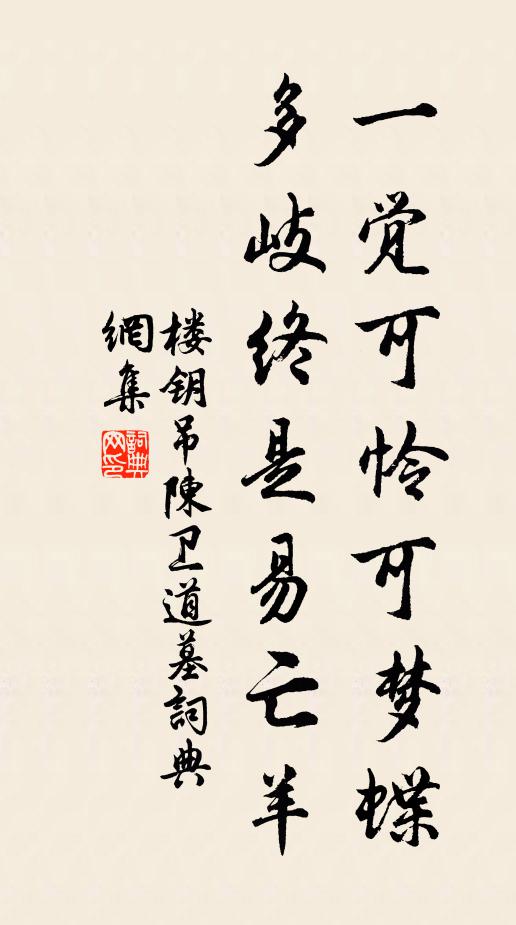 一觉可怜可梦蝶
多岐终是易亡羊
楼钥吊陳卫道墓詞典
網集
詞典网印